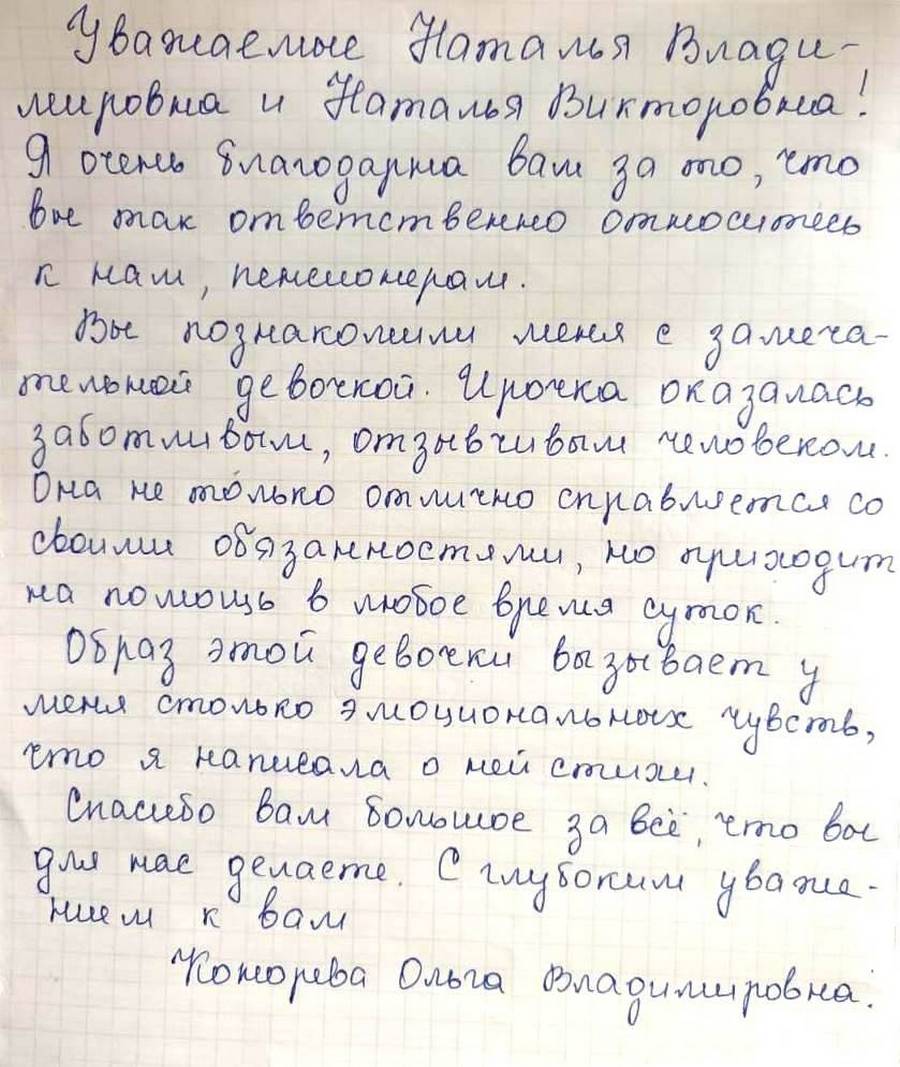 Уважаемые Наталья Влади-
мировна и Наталья Викторовна!
Я очень благодарна вам за то, что
вы так ответственно относитесь
к нам, пенсионерам.
Вы познакомили меня с замеча-
тельной девочкой. Ирочка оказалась
заботливым, отзывчивым человеком.
Она не только отлично справляется со
своими обязанностями, но приходит
на помощь в любое время суток.
Образ этой девочки вызывает у
меня столько эмоциональных чувств,
что я написала о ней стихи.
Спасибо вам большое за всё, что вы
для нас делаете. С глубоким уваже-
нием к вам
Ольга Владимировна.